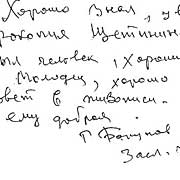 Хорошо знал, ув
рокопия Щетинин
ыл человек, хорош
Молодец, хорошо
овет в живописи.
ему добрая.
Г
Засл.